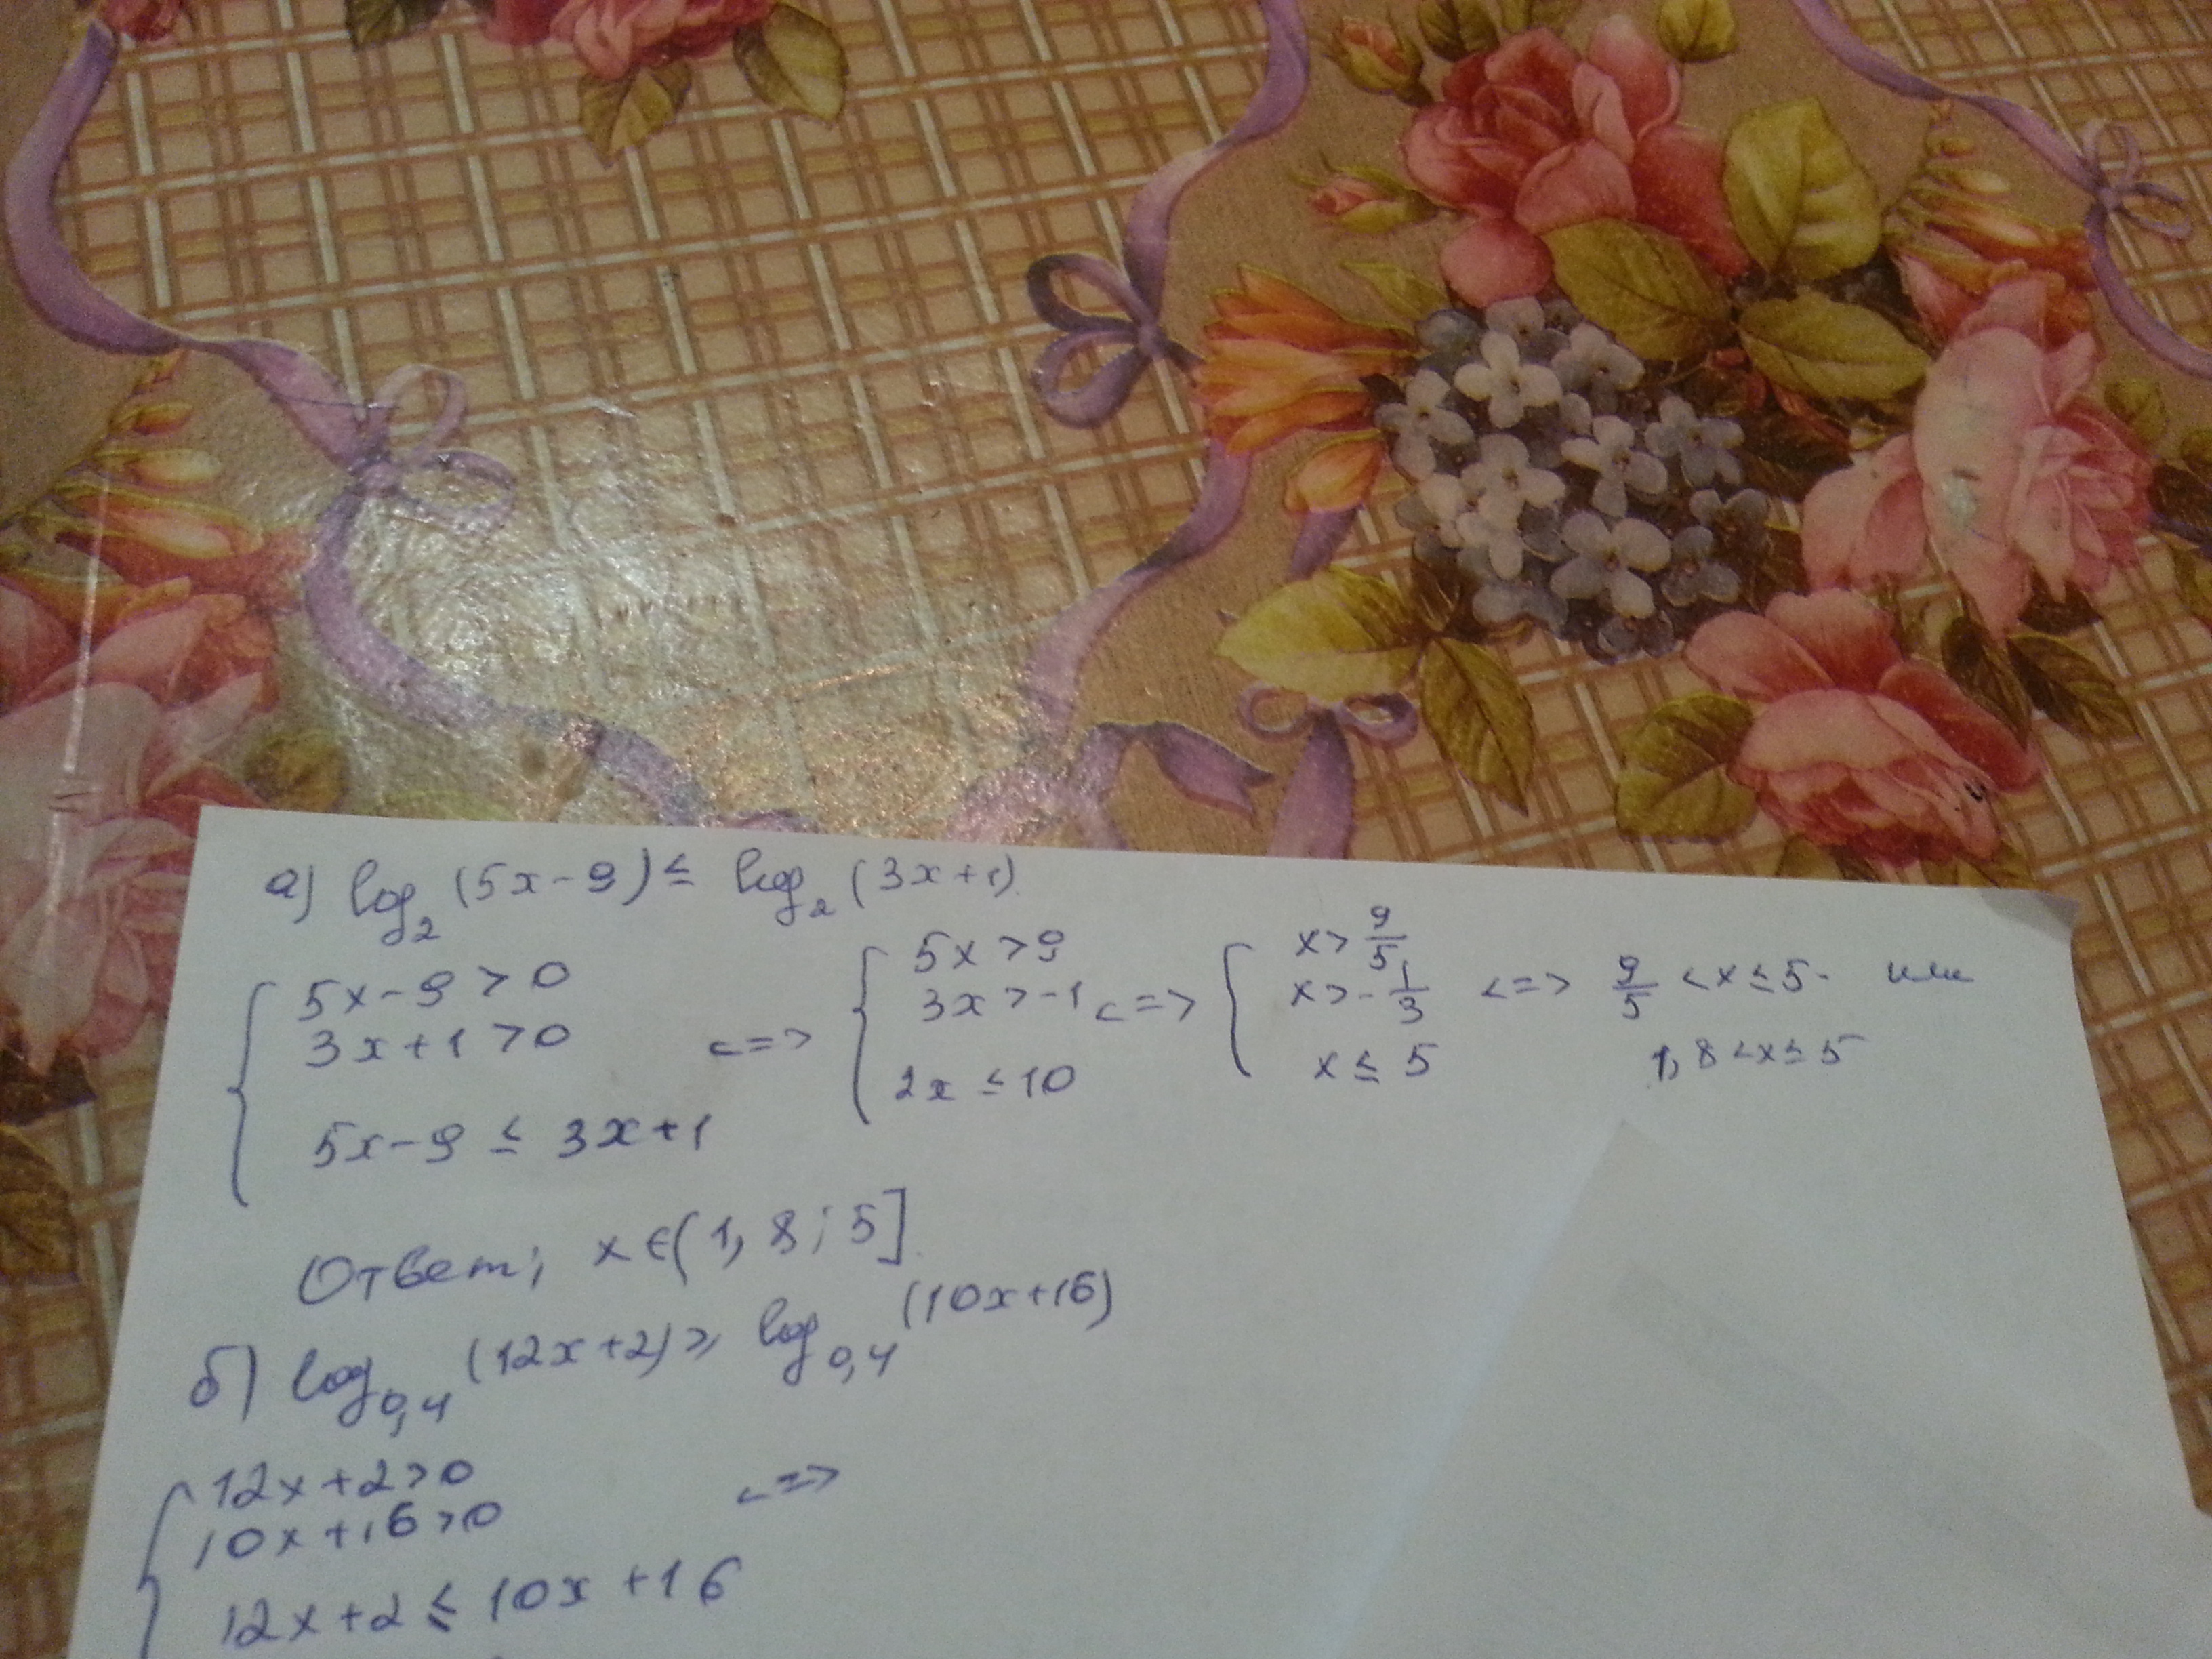 а) log₂(5x-9) ≤ log₂(3x+1)
5x-9 > 0
3x+1 > 0
5x-9 ≤ 3x+1
<=>
5x > 9
3x > -1
2x ≤ 10
<=>
x > 9/5
x > -1/3
x ≤ 5
<=> 9/5 < x ≤ 5 или
1,8 < x ≤ 5
Ответ: x ∈ (1,8; 5]
б) log₀,₄(12x+2) ≥ log₀,₄(10x+16)
12x+2 > 0
10x+16 > 0
12x+2 ≤ 10x+16
<=>